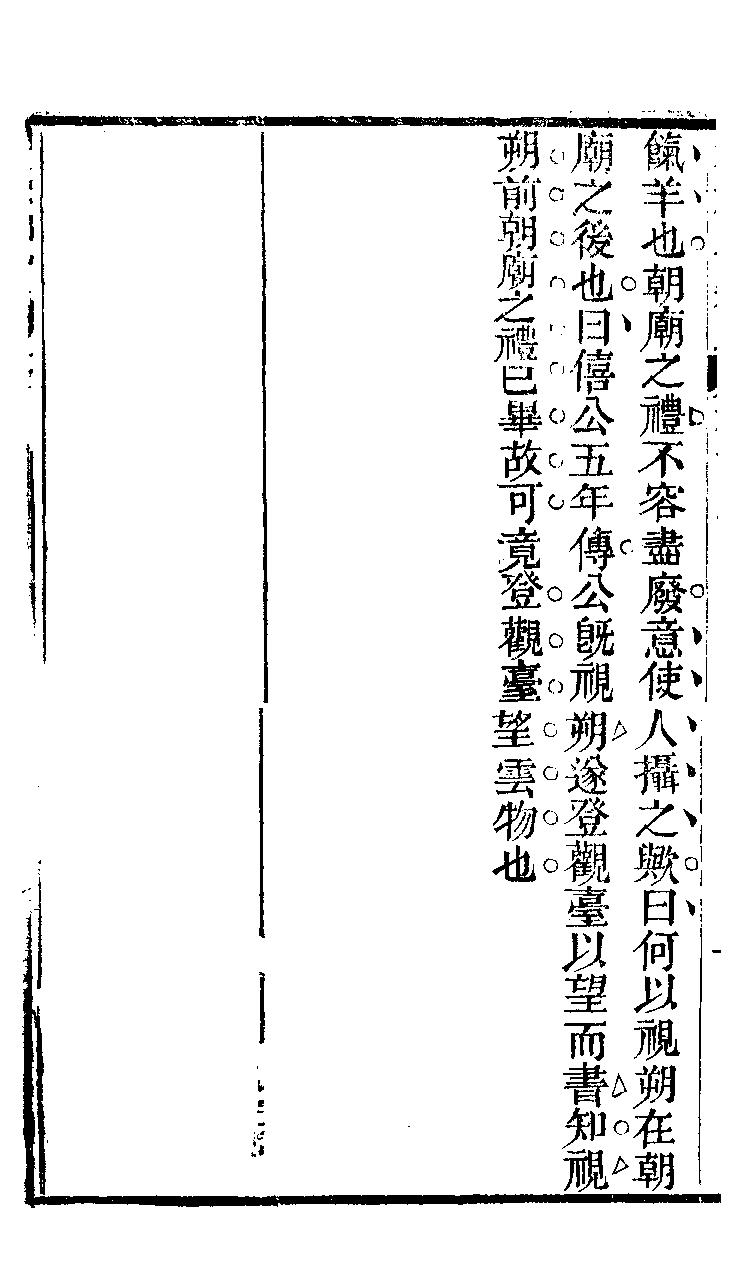 餼羊也朝廟之禮不容盡廢意使人攝之歟曰何以視朔在朝
廟之後也曰僖公五年傳公既視朔遂登觀臺以望而書知視
朔前朝廟之禮已畢故可竟登觀臺望雲物也